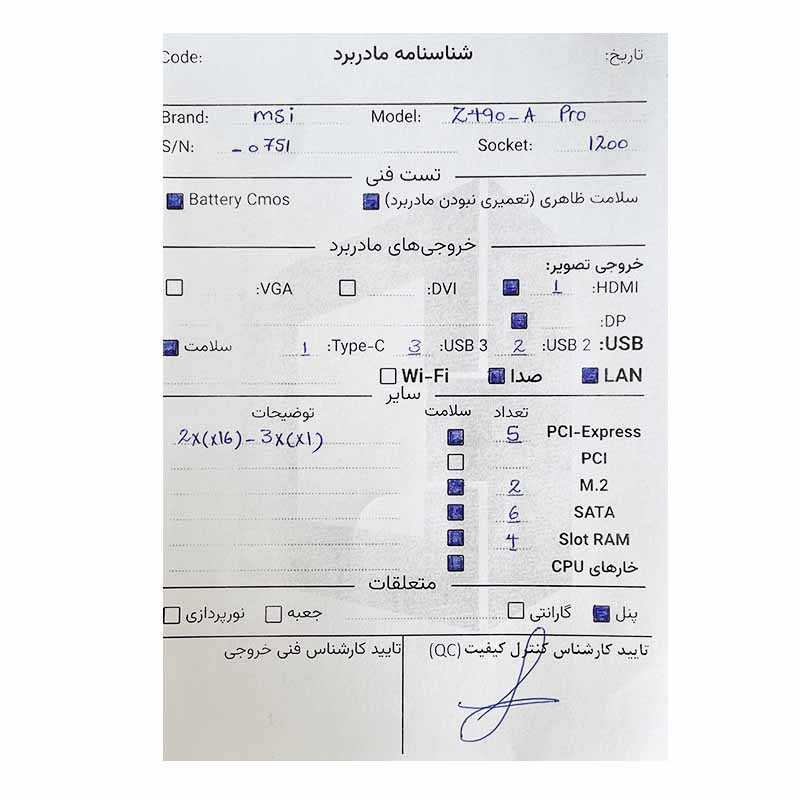 تاریخ: شناسنامه مادربرد Code:
Brand: msi Model: Z490-A Pro
S/N: -0751 Socket: 1200
تست فنی
سلامت ظاهری (تعمیری نبودن مادربرد) Battery Cmos
خروجی‌های مادربرد
خروجی تصویر:
HDMI: 1 DVI: VGA:
DP:
USB: USB 2: 2 USB 3: 3 Type-C: 1 سلامت
LAN صدا Wi-Fi
سایر
تعداد سلامت توضیحات
PCI-Express 5 2x(x16)-3x(x1)
PCI
M.2 2
SATA 6
Slot RAM 4
خارهای CPU
متعلقات
پنل گارانتی جعبه نورپردازی
تایید کارشناس کنترل کیفیت (QC) تایید کارشناس فنی خروجی